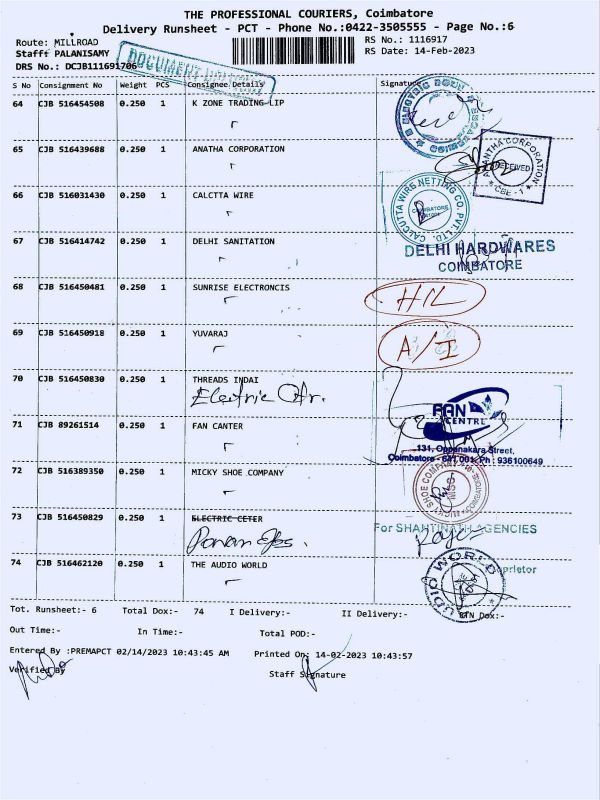 THE PROFESSIONAL COURIERS, Coimbatore
Delivery Runsheet - PCT - Phone No.:0422-3505555 - Page No.:6
Route: MILLROAD
Stafff PALANISAMY
DRS No.: DCJB111691706
RS No.: 1116917
RS Date: 14-Feb-2023
DOCUMENT
S No Consignment No Weight PCS Consignee Details Signature
64 CJB 516454508 0.250 1 K ZONE TRADING LIP
65 CJB 516439688 0.250 1 ANATHA CORPORATION
ANANTHA CORPORATION
RECEIVED
CBE - 1
66 CJB 516031430 0.250 1 CALCTTA WIRE
CALCUTTA WIRE NETTING CO. PVT. LTD.
COIMBATORE
67 CJB 516414742 0.250 1 DELHI SANITATION
DELHI HARDWARES
COIMBATORE
68 CJB 516450481 0.250 1 SUNRISE ELECTRONCIS
H/L
69 CJB 516450918 0.250 1 YUVARAJ
A/I
70 CJB 516450830 0.250 1 THREADS INDAI
Electric
71 CJB 89261514 0.250 1 FAN CANTER
FAN
CENTRE
131, Oppanakara Street,
Coimbatore - 641 001. Ph : 936100649
72 CJB 516389350 0.250 1 MICKY SHOE COMPANY
MICKY SHOE COMPANY
73 CJB 516450829 0.250 1 ELECTRIC CETER
For SHANTINATH AGENCIES
Proprietor
74 CJB 516462120 0.250 1 THE AUDIO WORLD
AUDIO WORLD
Tot. Runsheet:- 6 Total Dox:- 74 I Delivery:- II Delivery:- NTN Dox:-
Out Time:- In Time:- Total POD:-
Entered By :PREMAPCT 02/14/2023 10:43:45 AM Printed On: 14-02-2023 10:43:57
Verified By Staff Signature